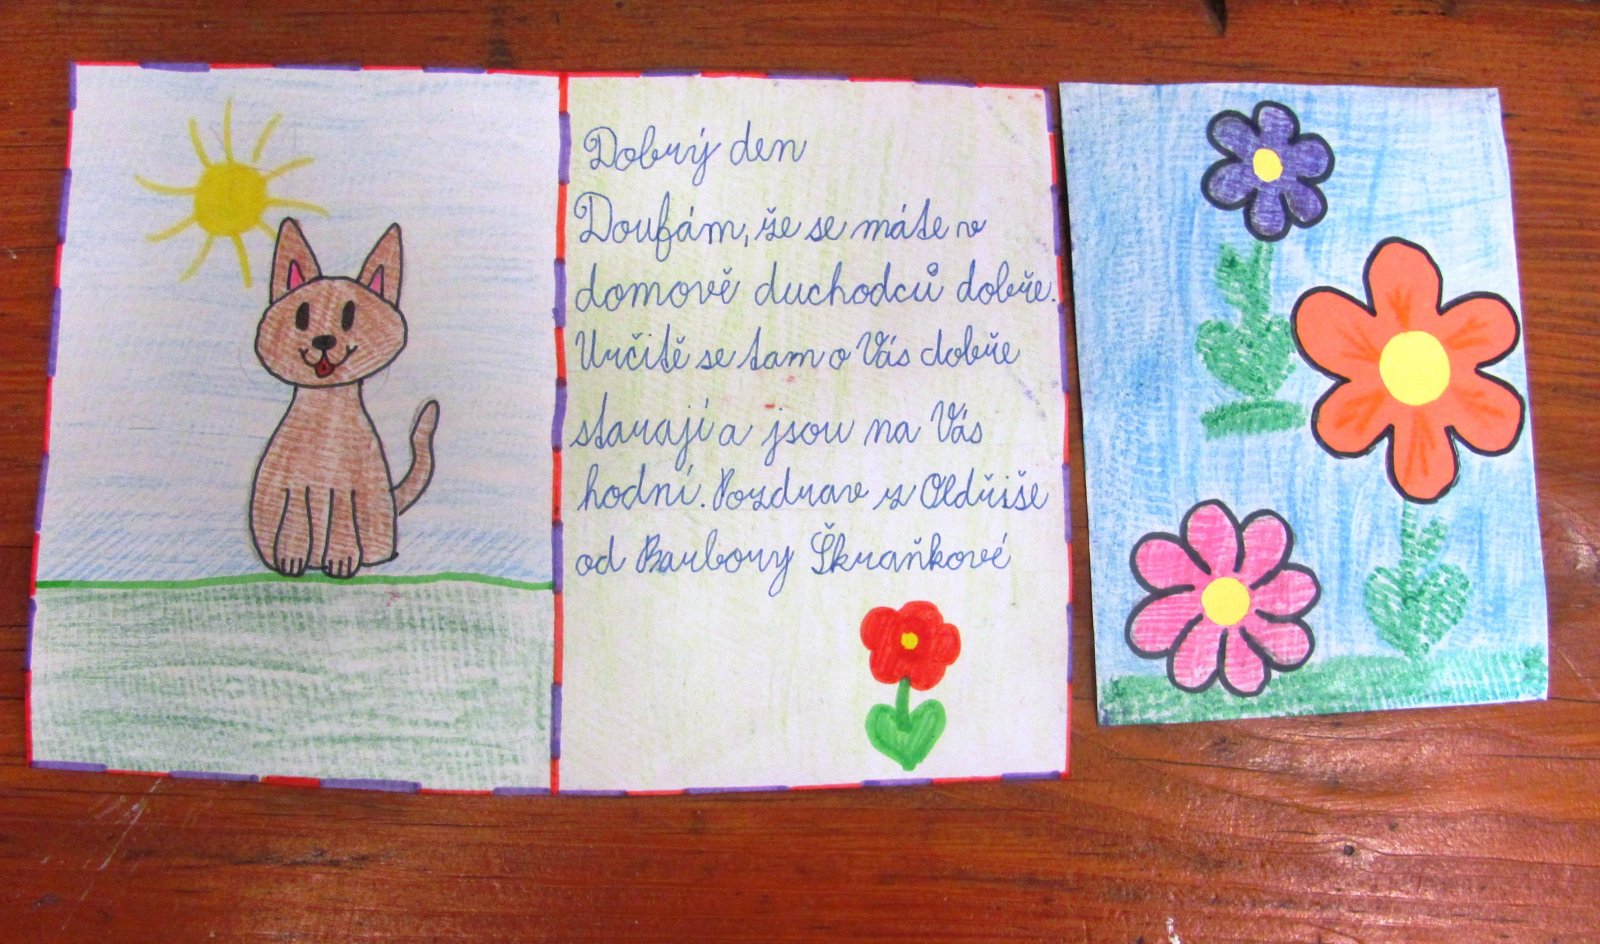 Dobrý den
Doufám, že se máte v
domově duchodců dobře.
Určitě se tam o Vás dobře
starají a jsou na Vás
hodní. Pozdrav z Oldřiše
od Barbory Škraňkové